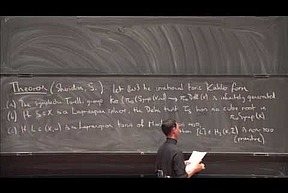 Theorem (Sheridan, S.) Let be irrational toric Kähler form
(a) The symplectic Torelli group Ker { π₀ Symp(X,ω) → π₀ Diff(X) } is infinitely generated
(b) If S ⊂ X is a Lagrangian sphere, the Dehn twist τ_S has no cube root in π₀ Symp(X)
(c) If L ⊂ (X,ω) is a Lagrangian torus of Maslov zero, then [L] ∈ H₂(X,ℤ) is non-zero
(primitive)